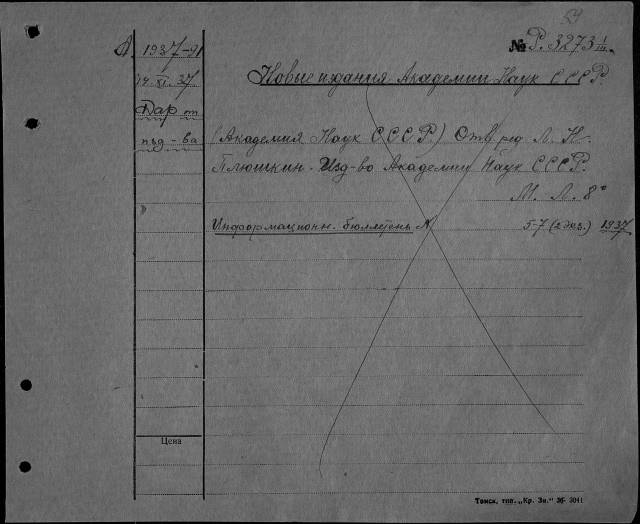 54
№ Р. 3273 I/III.
А. 1937-91
14. XI. 37
Новые издания Академии Наук СССР
Дар от
изд-ва
(Академия Наук СССР.) Отв ред Л. Н.
Плюшкин. Изд-во Академии Наук СССР.
М. Л. 8°
Информационн. бюллетень № 5-7 (2 экз.) 1937
Цена
Томск, тип. „Кр. Зн." 36- 3041